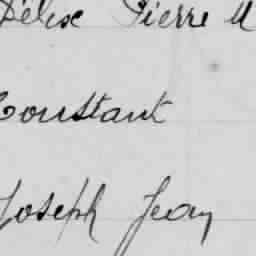 Félix Pierre M
Constant
Joseph Jean